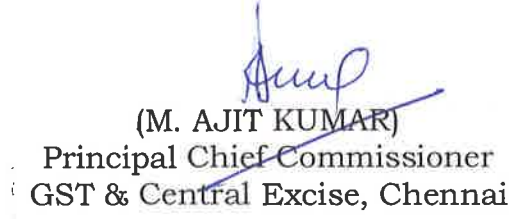 (M. AJIT KUMAR)
Principal Chief Commissioner
GST & Central Excise, Chennai